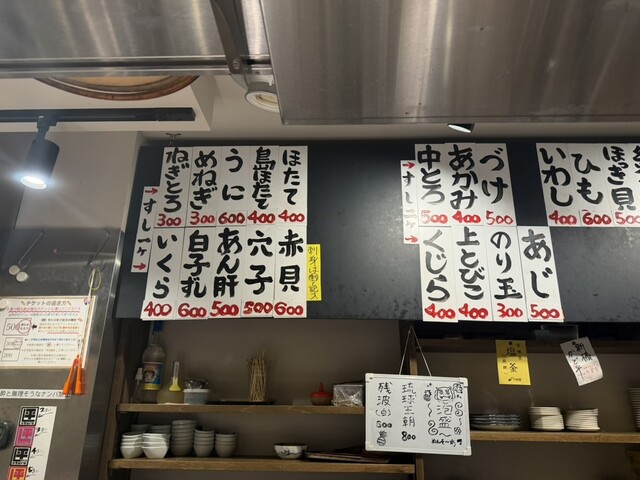 ほたて 400
島ほたて 400
うに 600
めねぎ 300
ねぎとろ 300
すし一ヶ
赤貝 600
穴子 500
あん肝 500
白子ずし 600
いくら 400
ほっき貝 500
ひも 600
いわし 400
づけ 500
あかみ 400
中とろ 500
すし一ヶ
あじ 500
のり玉 300
上とびこ 400
くじら 400
チケットの遊び方
泡盛
琉球王朝 800
残波(白) 600